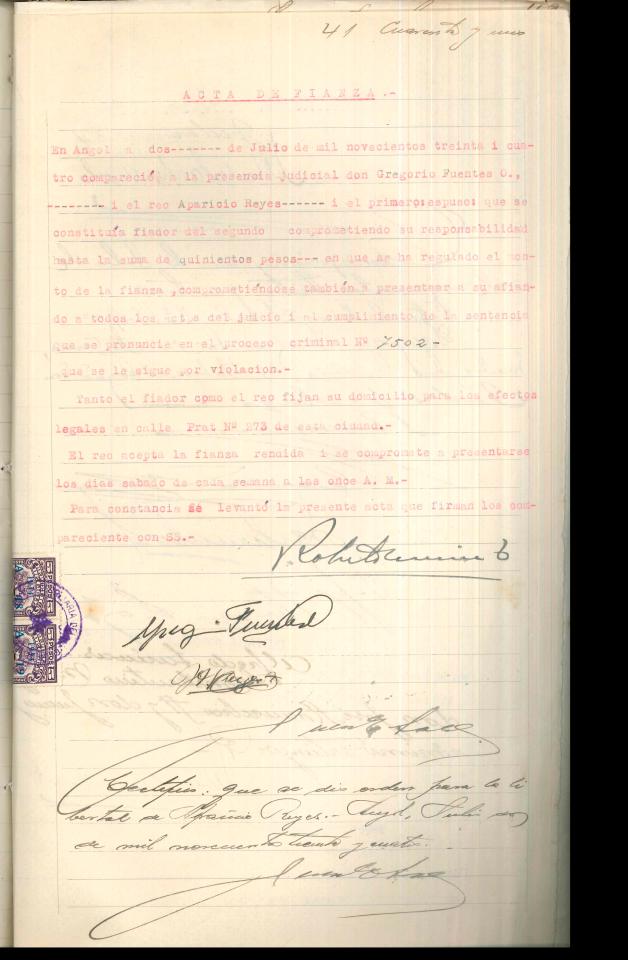 41 Cuarenta y uno
ACTA DE FIANZA.-
En Angol a dos------- de Julio de mil novecientos treinta i cua-
tro compareció a la presencia judicial don Gregorio Fuentes O.,
-------- i el reo Aparicio Reyes------ i el primero:espuso: que se
constituía fiador del segundo comprometiendo su responsabilidad
hasta la suma de quinientos pesos--- en que se ha regulado el mon-
to de la fianza ,comprometiéndose también a presentaar a su afian-
do a todos los actos del juicio i al cumplimiento de la sentencia
que se pronuncie en el proceso criminal Nº 7502-
que se le sigue por violacion.-
Tanto el fiador como el reo fijan su domicilio para los efectos
legales en calle Prat Nº 273 de esta ciudad.-
El reo acepta la fianza rendida i se compromete a presentarse
los días sabado de cada semana a las once A. M.-
Para constancia se levantó la presente acta que firman los com-
pareciente con SS.-
Greg. Fuentes
Certifico: que se dio orden para la li
bertad de Aparicio Reyes.- Angol, Julio dos
de mil novecientos treinta y cuatro.